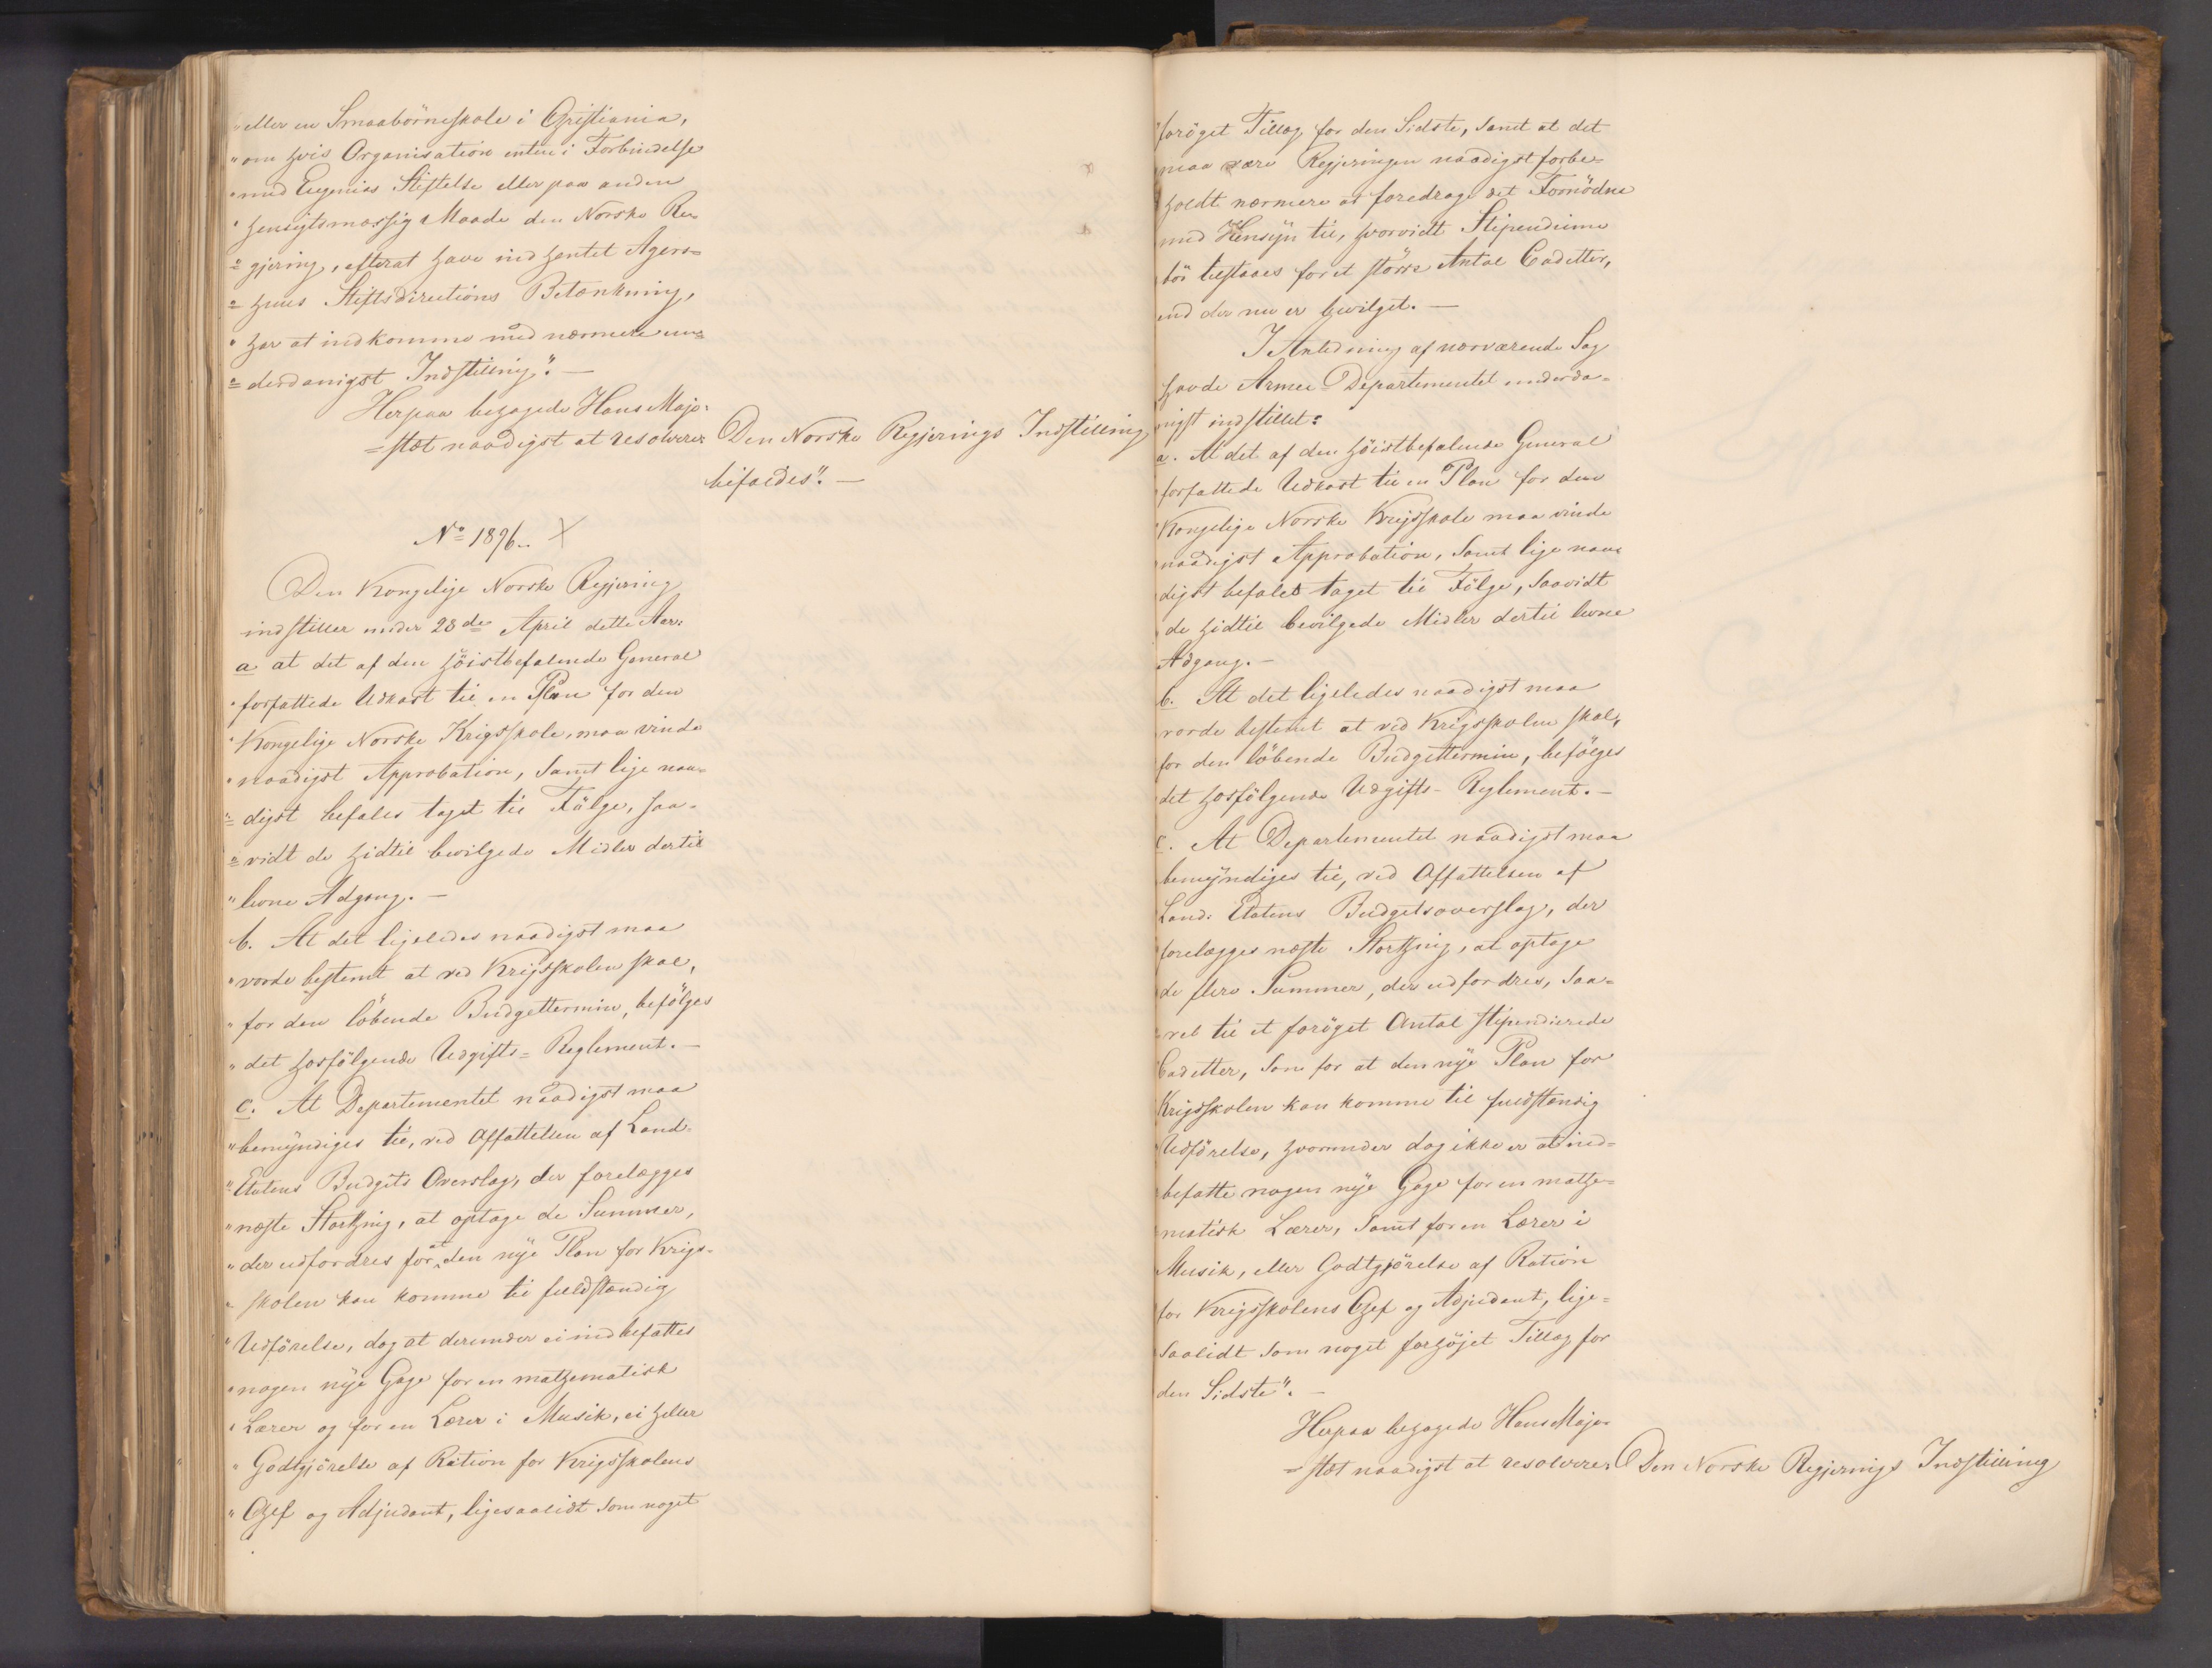 "eller en Smaabörneskole i Christiania,
"om hvis Organisation enten i Forbindelse
"med Eugenias Stiftelse eller paa anden
"hensigtsmæssig Maade den Norske Re=
"=gjering, efterat have indhentet Agers=
"=huus Stiftsdirections Betænkning,
"har at indkomme med nærmere un=
"=derdanigst Indstilling". —
Herpaa behagede Hans Maje=
=stæt naadigst at resolvere: Den Norske Regjerings Indstilling
bifaldes". —
No 1896. X
Den Kongelige Norske Regjering
indstiller under 28de April dette Aar:
a at det af den höistbefalende General
"forfattede Udkast til en Plan for den
"Kongelige Norske Krigsskole, maa vinde
"naadigst Approbation, samt lige naa=
"=digst befales taget til Fölge, saa=
"=vidt de hidtil bevilgede Midler dertil
"levne Adgang. —
b. At det ligeledes naadigst maa
"vorde bestemt at ved Krigsskolen skal,
"for den löbende Budgettermin, befölges
"det hosfölgende Udgifts=Reglement. —
c. At Departementet naadigst maa
"bemyndiges til, ved Affattelsen af Land=
"Etatens Budgets Overslag, der forelægges
"næste Storthing, at optage de Summer,
"der udfordres for at den nye Plan for Krigs=
"=skolen kan komme til fuldstændig
"Udförelse, dog at derunder ei indbefattes
"nogen nye Gage for en mathematisk
"Lærer og for en Lærer i Musik, ei heller
"Godtgjörelse af Ration for Krigsskolens
"Chef og Adjudant, ligesaalidt som noget
"foröget Tillæg for den Sidste, samt at det
"maa være Regjeringen naadigst forbe=
"holdt nærmere at foredrage det Fornödne
"med Hensyn til, hvorvidt Stipendium
"bör tilstaaes for et större Antal Cadetter,
"end der nu er bevilget. —
I Anledning af nærværende Sag
havde Armee=Departementet underda=
nigst indstillet:
"a. At det af den höistbefalende General
"forfattede Udkast til en Plan for den
"Kongelige Norske Krigsskole maa vinde
"naadigst Approbation, samt lige naa=
"digst befales taget til Fölge, saavidt
"de hidtil bevilgede Midler dertil levne
"Adgang. —
b. At det ligeledes naadigst maa
"vorde bestemt at ved Krigsskolen skal,
"for den löbende Budgettermin, befölges
"det hosfölgende Udgifts-Reglement. —
c. At Departementet naadigst maa
"bemyndiges til, ved Affattelsen af
"Land=Etatens Budgetsoverslag, der
"forelægges næste Storthing, at optage
"de flere Summer, der udfordres, saa=
"=vel til et foröget Antal stipendierede
"Cadetter, som for at den nye Plan for
"Krigsskolen kan komme til fuldstændig
"Udförelse, hvorunder dog ikke er at ind=
"befatte nogen nye Gage for en mathe=
"matisk Lærer, samt for en Lærer i
"Musik, eller Godtgjörelse af Ration
"for Krigsskolens Chef og Adjudant, lige=
"saalidt som noget forhöjet Tillæg for
"den Sidste". —
Herpaa behagede Hans Maje=
=stæt naadigst at resolvere: Den Norske Regjerings Indstilling